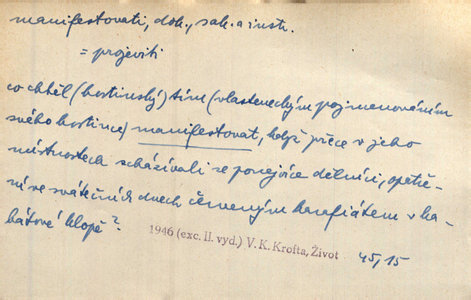 manifestovati, dok., sak. a instr.
= projeviti
co chtěl (hostinský) tím (vlasteneckým pojmenováním
svého hostince) manifestovat, když přece v jeho
místnostech scházívali se ponejvíce dělníci, opatře-
ní ve svátečních dnech červeným karafiátem v ka-
bátové klopě?
1946 (exc. II. vyd.) V. K. Krofta, Život
45, 15